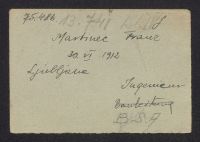 75.486 13.748
Martinec Franc
30. VI 1912
Ljubljana
Ingenieur
Bauleitung
B.S.A